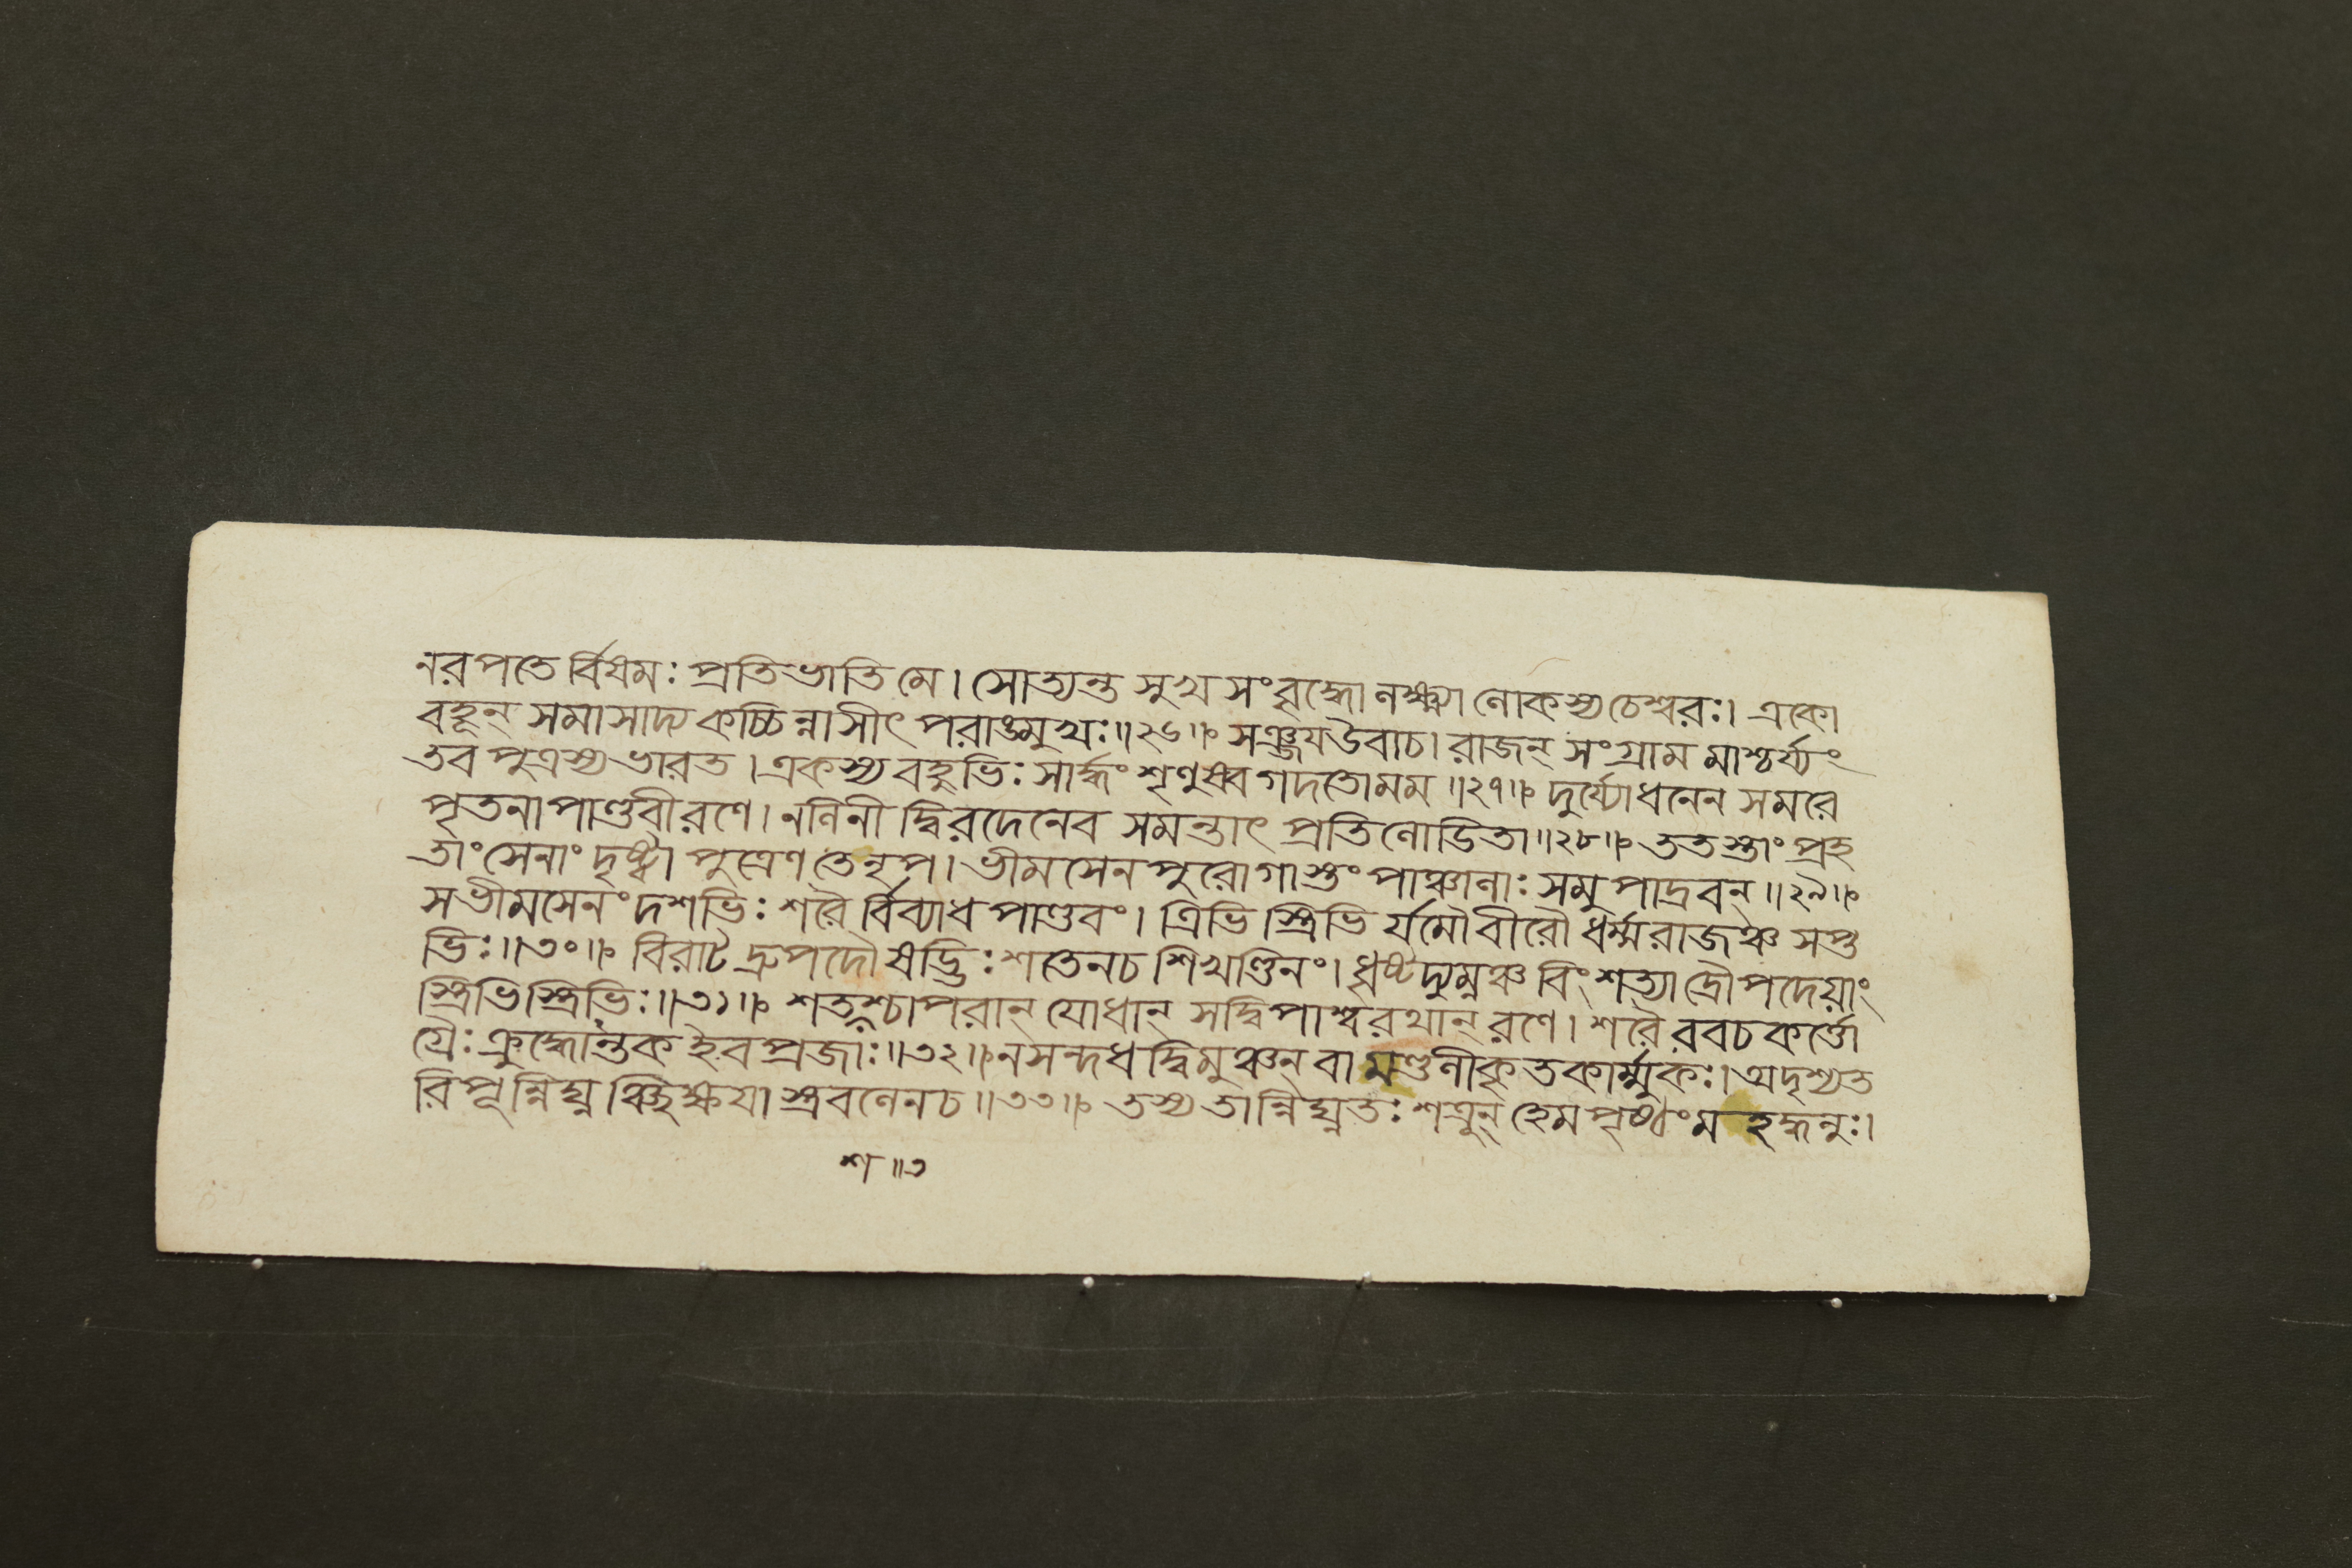 নরপতে র্বিষমঃ প্রতিভাতি মে। সোত্যন্ত সুখ সংবৃদ্ধো লক্ষ্ম্যা লোকস্য চেশ্বরঃ। একো
বহূন্ সমাসাদ্য কচ্চি ন্নাসীৎ পরাঙ্মুখঃ॥২৬॥ সঞ্জয উবাচ। রাজন্ সংগ্রাম মাশ্চর্য্যং
তব পুত্রস্য ভারত। একস্য বহুভিঃ সার্দ্ধং শৃণুষ্ব গদতো মম॥২৭॥ দুর্য্যোধনেন সমরে
পৃতনা পাণ্ডবী রণে। নলিনী দ্বিরদেনেব সমন্তাৎ প্রতিলোডিতা॥২৮॥ ততস্তাং প্রহ
তাং সেনাং দৃষ্ট্বা পুত্রেণ তে নৃপ। ভীমসেন পুরোগাস্তং পাঞ্চালাঃ সমুপাদ্রবন্॥২৯॥
স ভীমসেনং দশভিঃ শরৈ র্বিব্যাধ পাণ্ডবং। ত্রিভি স্ত্রিভি র্যমৌ বীরৌ ধর্ম্মরাজঞ্চ সপ্ত
ভিঃ॥৩০॥ বিরাট দ্রুপদৌ ষড্ভিঃ শতেন চ শিখণ্ডিনং। ধৃষ্টদ্যুম্নঞ্চ বিংশত্যা দ্রৌপদেয়াং
স্ত্রিভি স্ত্রিভিঃ॥৩১॥ শতশশ্চাপরান্ যোধান্ সদ্বিপাশ্বরথান্ রণে। শরৈ রবচকর্ত্তো
গ্রৈঃ ক্রুদ্ধোন্তক ইব প্রজাঃ॥৩২॥ ন সন্দধ দ্বিমুঞ্চন্ বা মণ্ডলীকৃতকার্ম্মুকঃ। অদৃশ্যত
রিপূ ন্নিঘ্ন ঞ্ছিক্ষযাস্ত্রবলেন চ॥৩৩॥ তস্য তান্নিঘ্নতঃ শত্রূন্ হেমপৃষ্ঠং মহদ্ধনুঃ।
শ॥৩